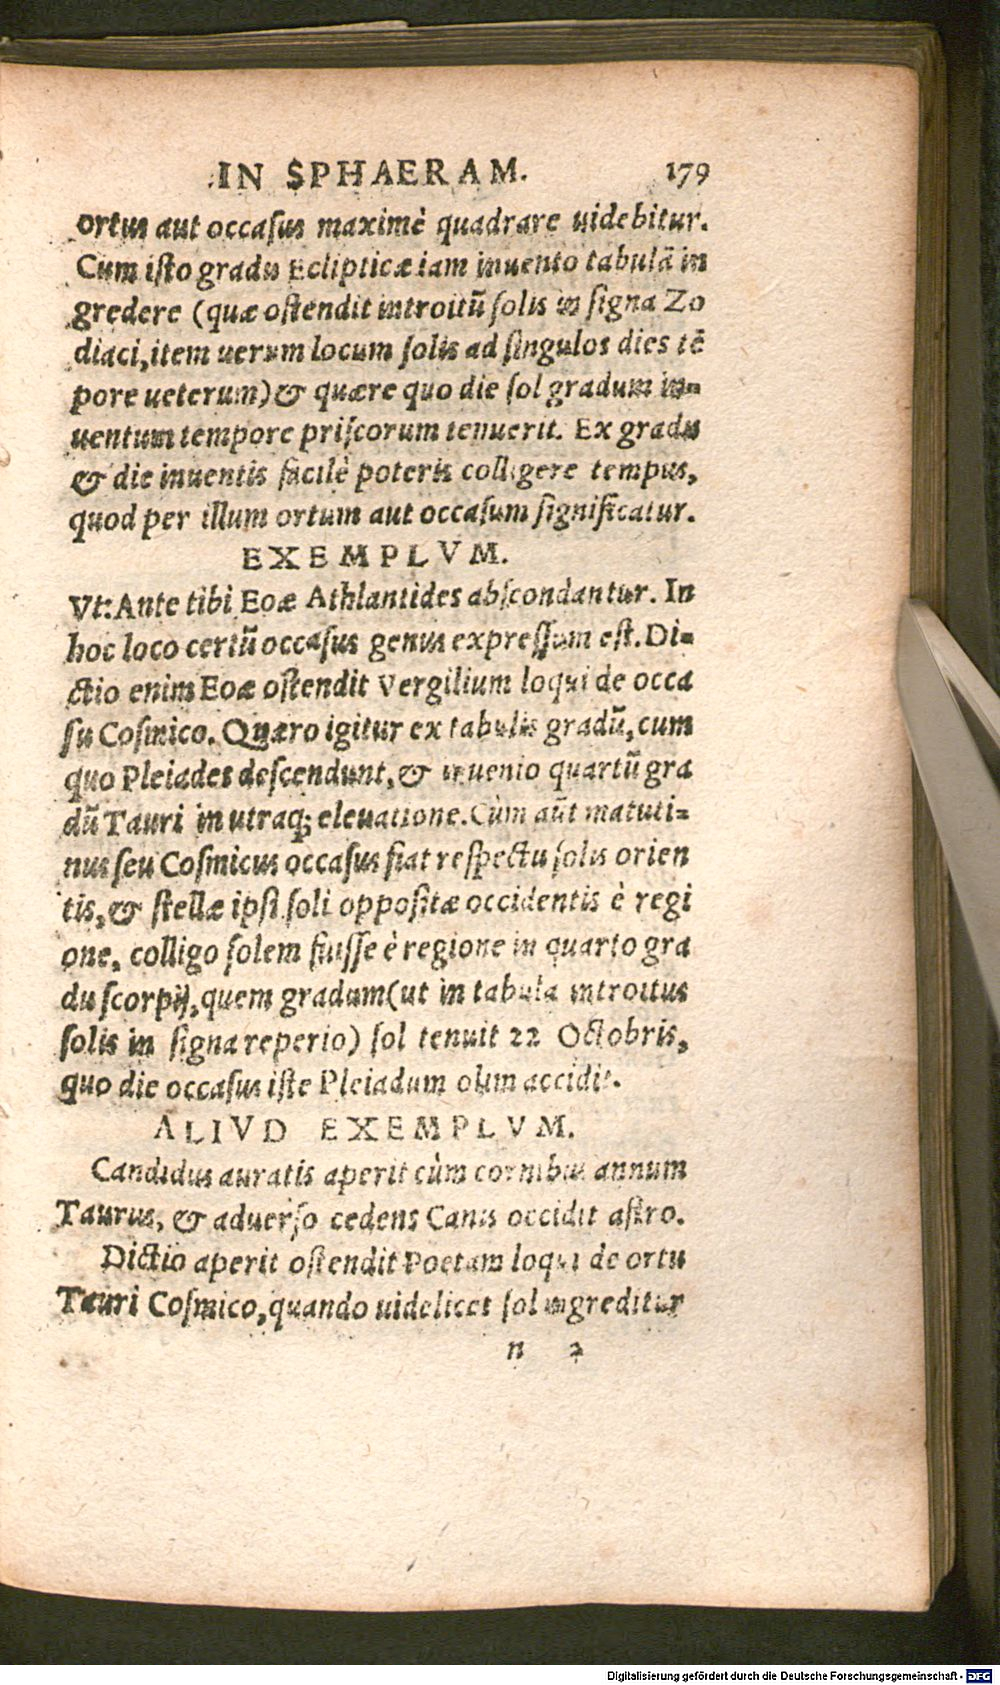 IN SPHAERAM. 179
ortus aut occasus maximè quadrare uidebitur.
Cum isto gradu Eclipticæ iam inuento tabulā in
gredere (quæ ostendit introitū solis in signa Zo
diaci, item uerum locum solis ad singulos dies tē
pore ueterum) & quære quo die sol gradum in-
uentum tempore priscorum tenuerit. Ex gradu
& die inuentis facilè poteris colligere tempus,
quod per illum ortum aut occasum significatur.
EXEMPLVM.
Vt: Ante tibi Eoæ Athlantides abscondantur. In
hoc loco certū occasus genus expressum est. Di-
ctio enim Eoæ ostendit Vergilium loqui de occa
su Cosmico. Quæro igitur ex tabulis gradū, cum
quo Pleiades descendunt, & inuenio quartū gra
dū Tauri in utraq; eleuatione. Cùm aūt matuti-
nus seu Cosmicus occasus fiat respectu solis orien
tis, & stellæ ipsi soli oppositæ occidentis è regi
one, colligo solem fuisse è regione in quarto gra
du scorpij, quem gradum (ut in tabula introitus
solis in signa reperio) sol tenuit 22 Octobris,
quo die occasus iste Pleiadum olim accidit.
ALIVD EXEMPLVM.
Candidus auratis aperit cùm cornibus annum
Taurus, & aduerso cedens Canis occidit astro.
Dictio aperit ostendit Poetam loqui de ortu
Tauri Cosmico, quando uidelicet sol ingreditur
n 2
Digitalisierung gefördert durch die Deutsche Forschungsgemeinschaft - DFG